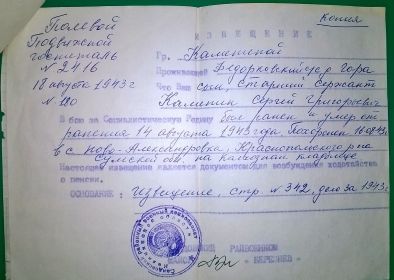 Полевой
Подвижной
госпиталь
№ 2416
18 августа 1943 г
№ 180
Копия
ИЗВЕЩЕНИЕ
Гр.
Проживающей Федорковский с/с д Гора
Что Ваш сын, старший сержант
Сергей Григорович
В бою за Социалистическую Родину был ранен и умер от
ранения 14 августа 1943 года. Похоронен 16.08.43
в с. Ново-Александровка, Краснопольского р-на
Сумской обл, на колхозном кладбище
Настоящее извещение является документом для возбуждения ходатайства
о пенсии.
ОСНОВАНИЕ: Извещение, стр. № 342, дело за 1943 г
РАЙВОЕНКОМ